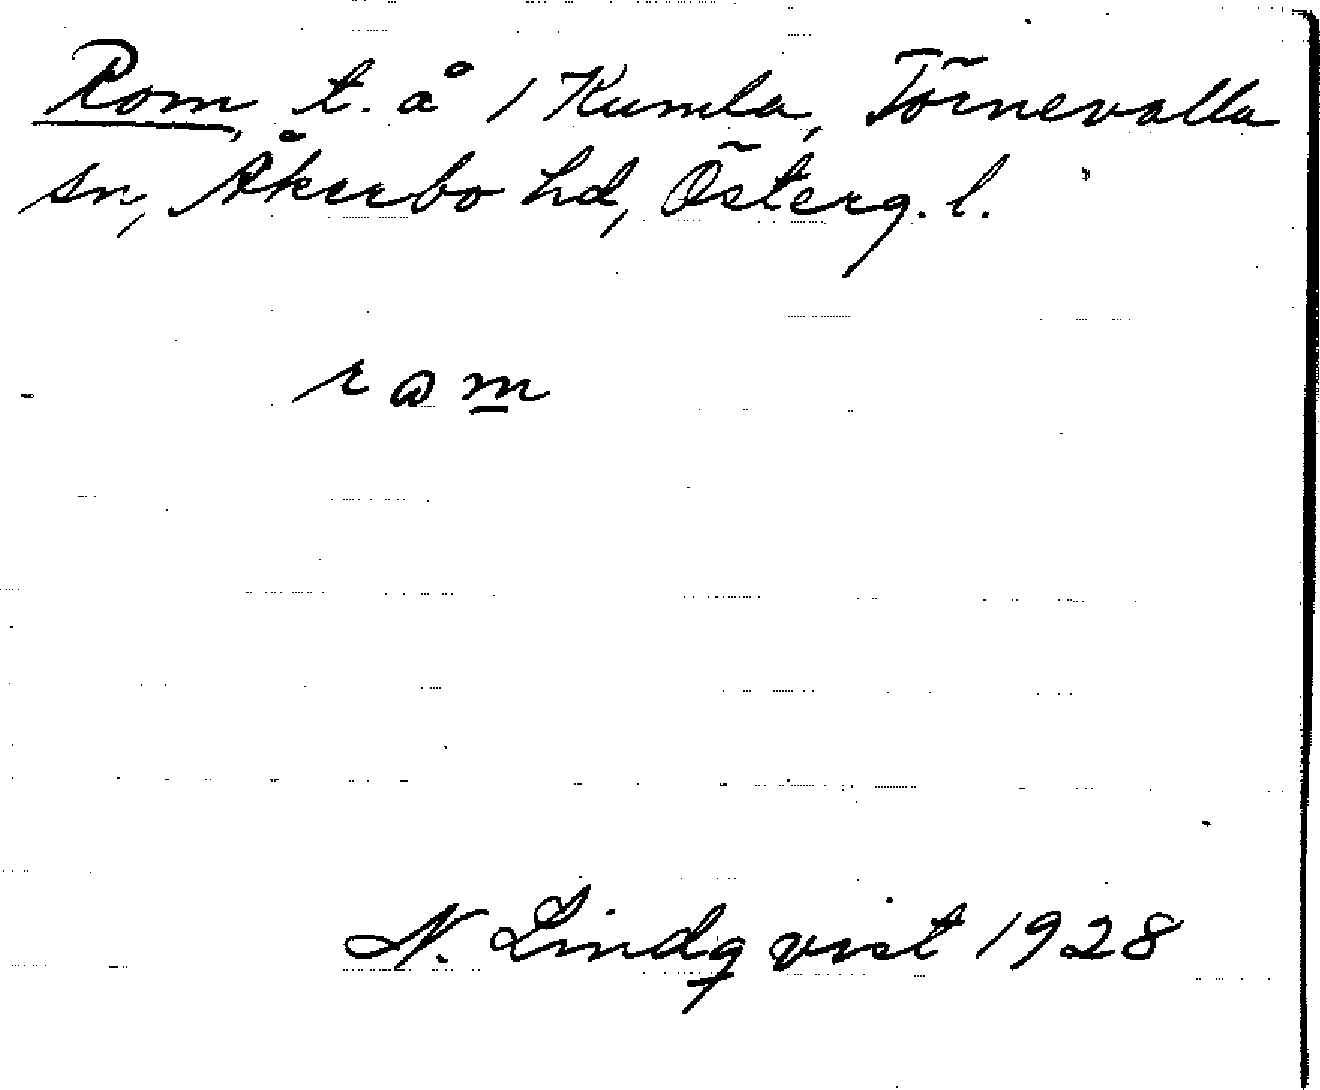 Rom, t. å 1 Kumla, Törnevalla
sn, Åkerbo hd, Österg. l.
N. Lindqvist 1928